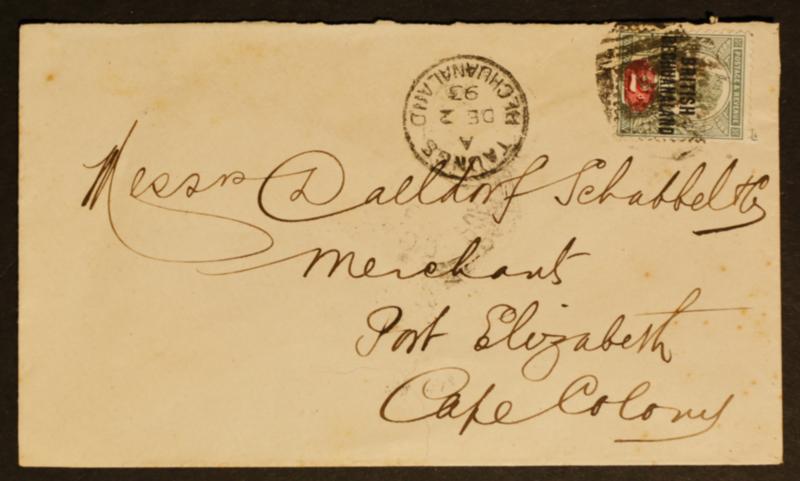 TAUNGS
A
DE 2
93
BECHUANALAND
POSTAGE & REVENUE
BRITISH
BECHUANALAND
2
Messrs Daelldorf Schabbel & Co
Merchants
Port Elizabeth
Cape Colony